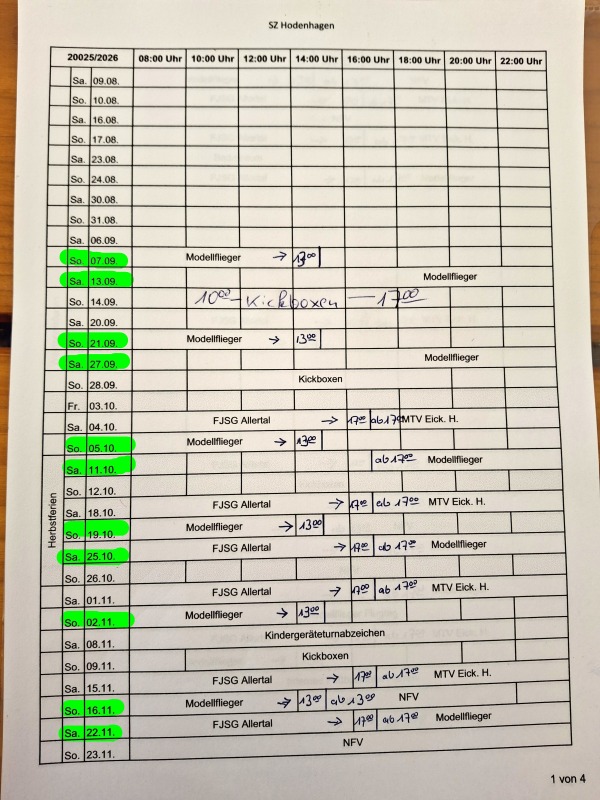 SZ Hodenhagen
20025/2026 08:00 Uhr 10:00 Uhr 12:00 Uhr 14:00 Uhr 16:00 Uhr 18:00 Uhr 20:00 Uhr 22:00 Uhr
Sa. 09.08.
So. 10.08.
Sa. 16.08.
So. 17.08.
Sa. 23.08.
So. 24.08.
Sa. 30.08.
So. 31.08.
Sa. 06.09.
So. 07.09. Modellflieger → 1300
Sa. 13.09. Modellflieger
So. 14.09. 1000 - Kickboxen - 1700
Sa. 20.09.
So. 21.09. Modellflieger → 1300
Sa. 27.09. Modellflieger
So. 28.09. Kickboxen
Fr. 03.10.
Sa. 04.10. FJSG Allertal → 1700 ab 1700 MTV Eick. H.
So. 05.10. Modellflieger → 1300
Herbstferien
Sa. 11.10. ab 1700 Modellflieger
So. 12.10.
Sa. 18.10. FJSG Allertal → 1700 ab 1700 MTV Eick. H.
So. 19.10. Modellflieger → 1300
Sa. 25.10. FJSG Allertal → 1700 ab 1700 Modellflieger
So. 26.10.
Sa. 01.11. FJSG Allertal → 1700 ab 1700 MTV Eick. H.
So. 02.11. Modellflieger → 1300
Sa. 08.11. Kindergeräteturnabzeichen
So. 09.11. Kickboxen
Sa. 15.11. FJSG Allertal → 1700 ab 1700 MTV Eick. H.
So. 16.11. Modellflieger → 1300 ab 1300 NFV
Sa. 22.11. FJSG Allertal → 1700 ab 1700 Modellflieger
So. 23.11. NFV
1 von 4